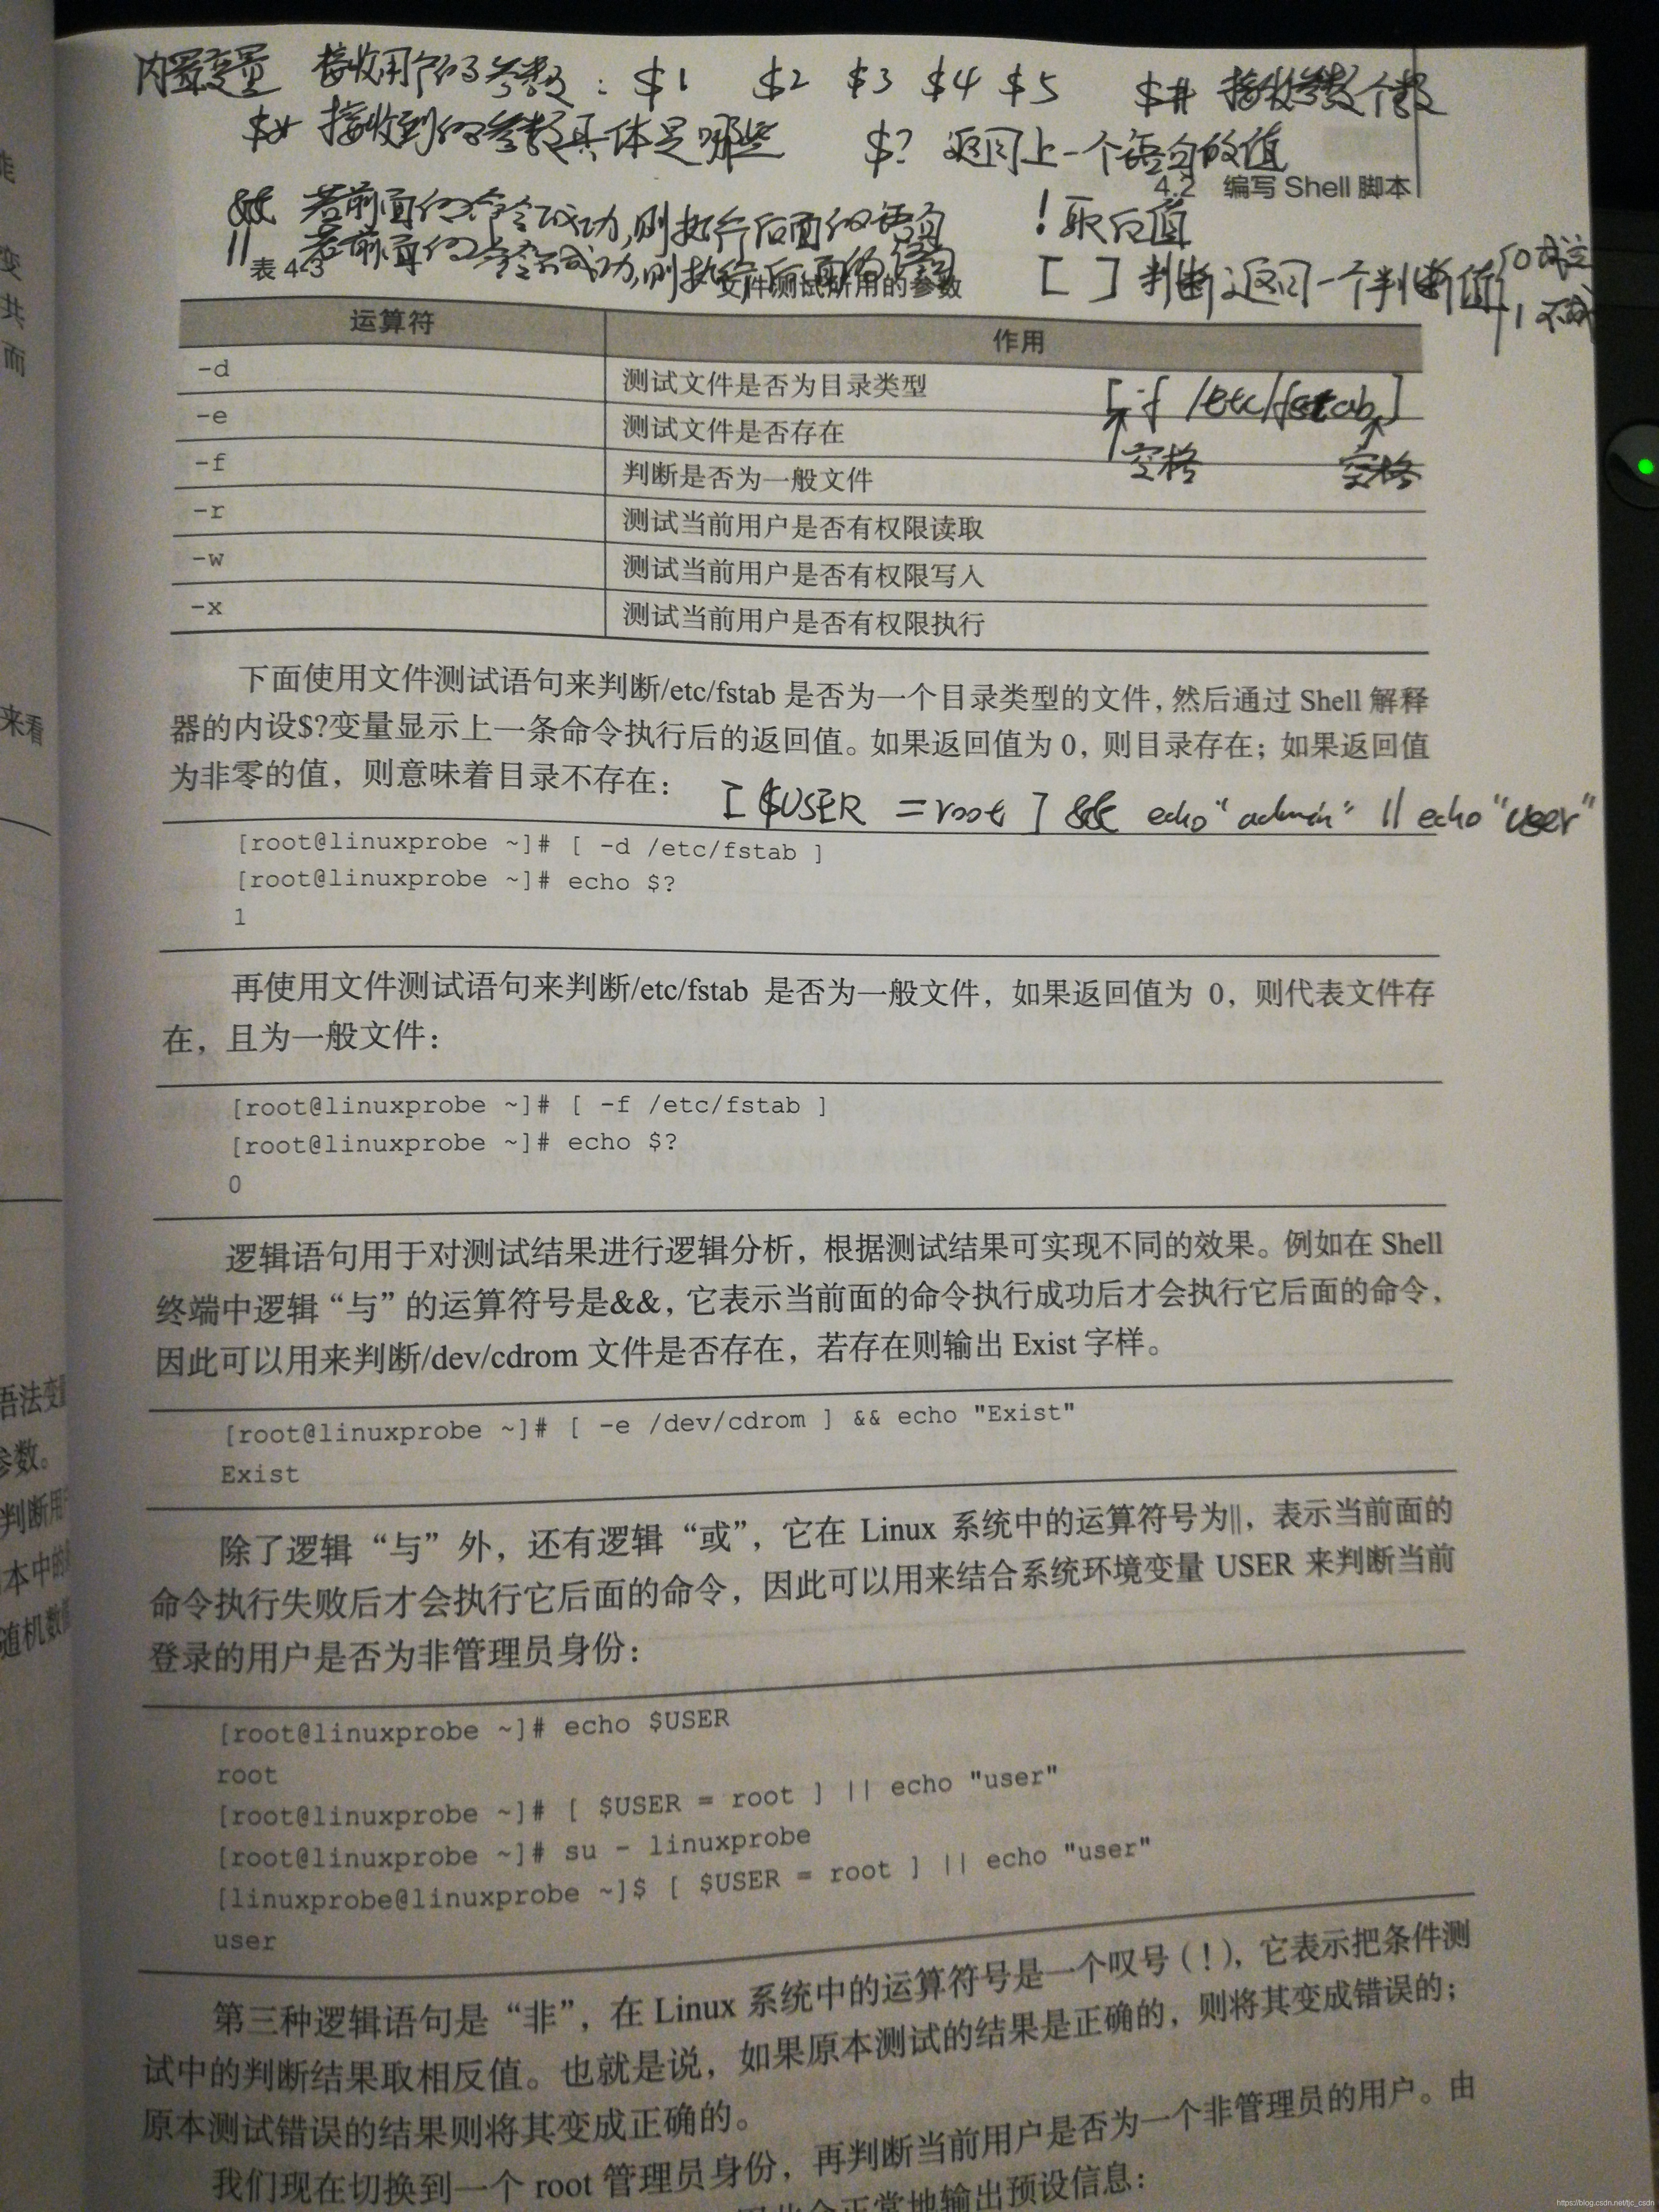 内置变量 接收用户的参数：$1 $2 $3 $4 $5 $# 接收参数个数
$* 接收到的参数具体是哪些 $? 返回上一个语句的值
4.2 编写 Shell 脚本
&& 若前面的命令成功,则执行后面的语句 ! 取反值
|| 若前面的命令不成功,则执行后面的语句
[ ] 判断;返回一个判断值 0 成立
1 不成
表 4-3 文件测试所用的参数
运算符 作用
-d 测试文件是否为目录类型
[ -f /etc/fstab ]
-e 测试文件是否存在
空格 空格
-f 判断是否为一般文件
-r 测试当前用户是否有权限读取
-w 测试当前用户是否有权限写入
-x 测试当前用户是否有权限执行
下面使用文件测试语句来判断/etc/fstab 是否为一个目录类型的文件，然后通过 Shell 解释
器的内设$?变量显示上一条命令执行后的返回值。如果返回值为 0，则目录存在；如果返回值
为非零的值，则意味着目录不存在：
[ $USER = root ] && echo "admin" || echo "user"
[root@linuxprobe ~]# [ -d /etc/fstab ]
[root@linuxprobe ~]# echo $?
1
再使用文件测试语句来判断/etc/fstab 是否为一般文件，如果返回值为 0，则代表文件存
在，且为一般文件：
[root@linuxprobe ~]# [ -f /etc/fstab ]
[root@linuxprobe ~]# echo $?
0
逻辑语句用于对测试结果进行逻辑分析，根据测试结果可实现不同的效果。例如在 Shell
终端中逻辑“与”的运算符号是&&，它表示当前面的命令执行成功后才会执行它后面的命令，
因此可以用来判断/dev/cdrom 文件是否存在，若存在则输出 Exist 字样。
[root@linuxprobe ~]# [ -e /dev/cdrom ] && echo "Exist"
Exist
除了逻辑“与”外，还有逻辑“或”，它在 Linux 系统中的运算符号为||，表示当前面的
命令执行失败后才会执行它后面的命令，因此可以用来结合系统环境变量 USER 来判断当前
登录的用户是否为非管理员身份：
[root@linuxprobe ~]# echo $USER
root
[root@linuxprobe ~]# [ $USER = root ] || echo "user"
[root@linuxprobe ~]# su - linuxprobe
[linuxprobe@linuxprobe ~]$ [ $USER = root ] || echo "user"
user
第三种逻辑语句是“非”，在 Linux 系统中的运算符号是一个叹号（！），它表示把条件测
试中的判断结果取相反值。也就是说，如果原本测试的结果是正确的，则将其变成错误的；
原本测试错误的结果则将其变成正确的。
我们现在切换到一个 root 管理员身份，再判断当前用户是否为一个非管理员的用户。由
正常地输出预设信息：
来看
变
共
而
语法变
参数。
判断用
本中的
随机数
https://blog.csdn.net/tjc_csdn